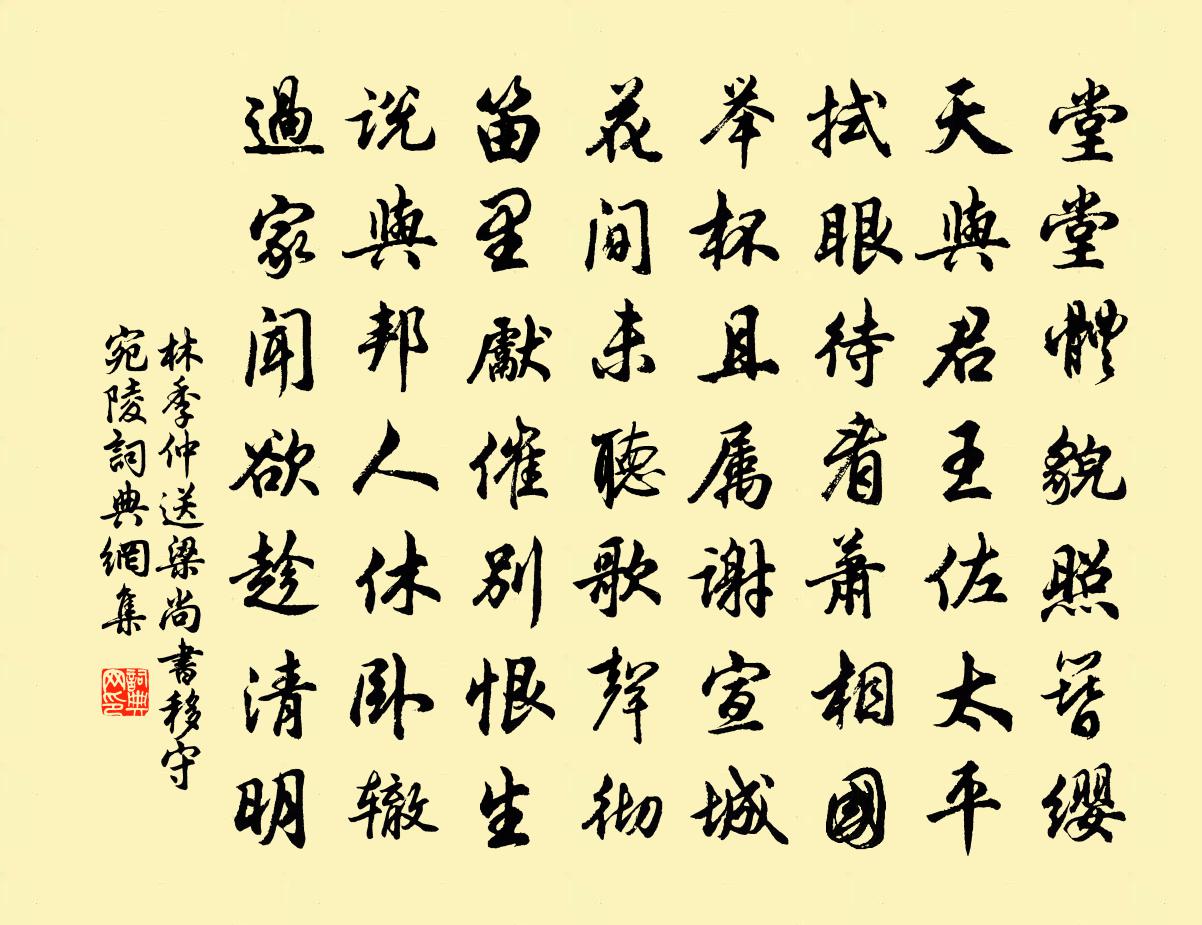 堂堂體貌照簪纓
天與君王佐太平
拭眼待看蕭相國
举杯且属谢宣城
花间未聽歌聲彻
笛里獻催别恨生
说與邦人休卧辙
過家闻欲趁清明
林季仲送梁尚書移守
宛陵詞典網集
詞典
网印